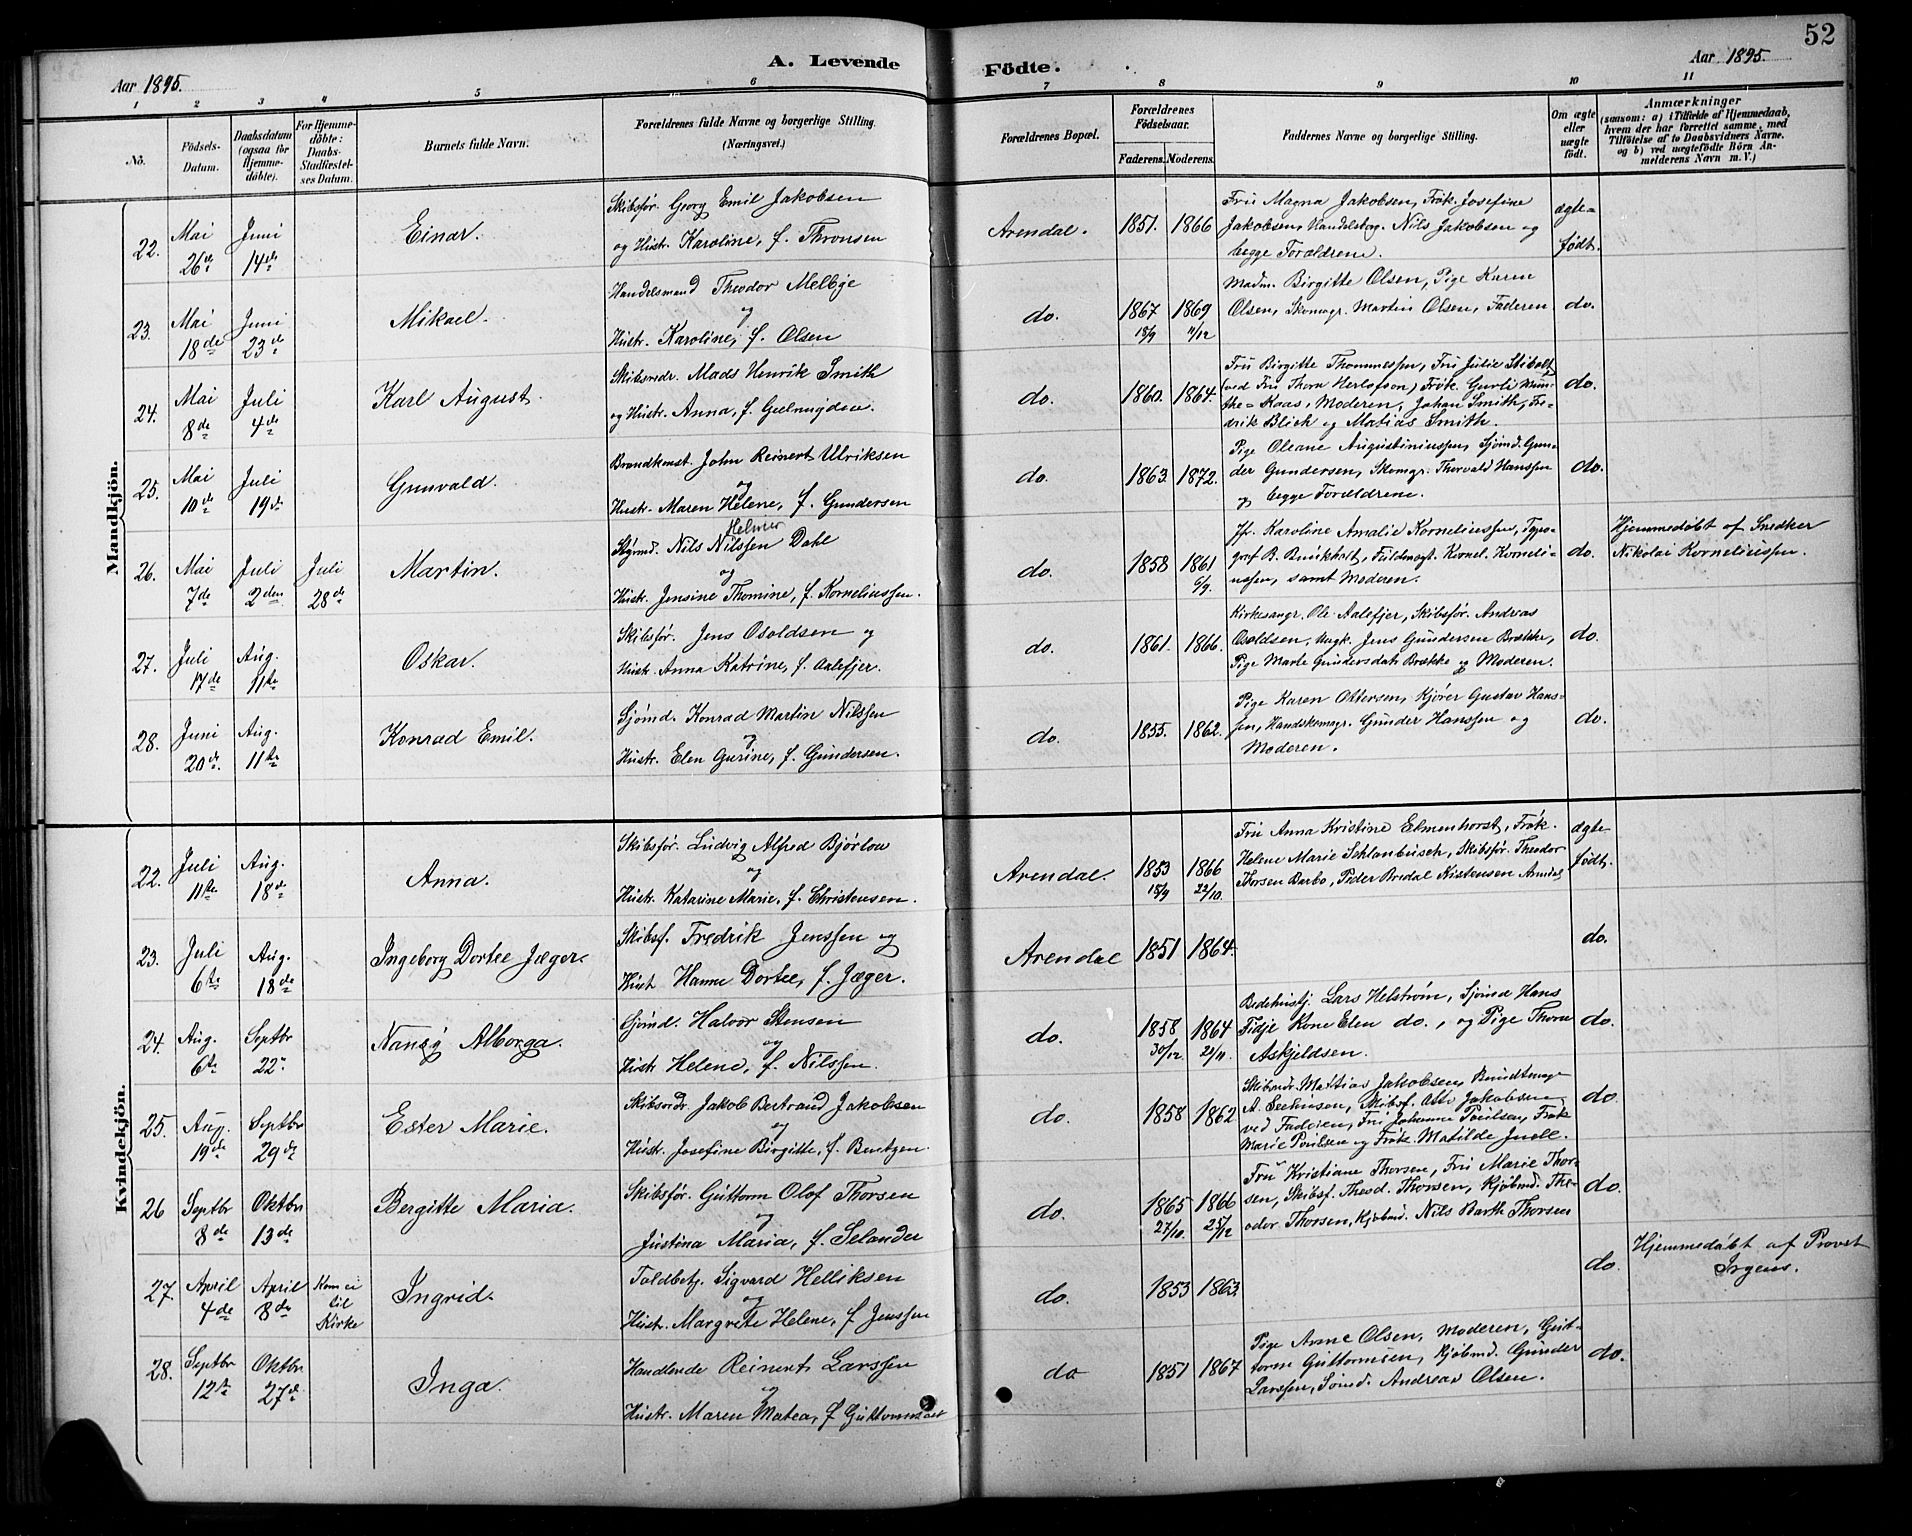 52
Aar 1895.
A. Levende
Födte.
Aar 1895.
1 2 3 4 5 6 7 8 9 10 11
No.
Födsels-
Datum.
Daabsdatum
(ogsaa for
Hjemme-
döbte).
For Hjemme-
döbte:
Daabs-
Stadfæstel-
ses Datum.
Barnets fulde Navn.
Forældrenes fulde Navne og borgerlige Stilling.
(Næringsvei.)
Forældrenes Bopæl.
Forældrenes
Födselsaar.
Faderens. Moderens.
Faddernes Navne og borgerlige Stilling.
Om ægte
eller
uægte
födt.
Anmærkninger
(saasom: a) i Tilfælde af Hjemmedaab,
hvem der har forrettet samme, med
Tilföielse af to Daabsvidners Navne.
og b) ved uægtefödte Börn An-
melderens Navn m. V.)
Mandkjön.
22.
Mai
26de
Juni
14de
Einar.
Skibsfør. Georg Emil Jakobsen
og Hustr. Karoline, f. Thronsen
Arendal.
1851. 1866
Fru Magna Jakobsen, Frøk. Josefine
Jakobsen, Handelsborg. Nils Jakobsen og
begge Forældrene.
ægte-
født.
23.
Mai
18de
Juni
23de
Mikael.
Handelsmand Theodor Melbye
og
Hustr. Karoline, f. Olsen
do.
1867 1869
18/9 11/12
Madm. Birgitte Olsen, Pige Karen
Olsen, Skomagr. Martin Olsen, Faderen
do.
24.
Mai
8de
Juli
4de
Karl August.
Skibsredr. Mads Henrik Smith
og Hustr. Anna, f.
do.
1860. 1864.
Fru Birgitte Thommesen, Fru Julie Stibolt
(ved Fru Thora Herlofson) Frøk. Gunli Mun-
the-Kaas, Moderen, Johan Smith, Fre-
drik Blich og Matias Smith.
do.
25.
Mai
10de
Juli
19de
Gunvald.
Brandkonst. John Reinert Ulriksen
og
Hustr. Maren Helene, f. Gundersen
do.
1863. 1872.
Pige Oleane Augustiniussen, Sjømd. Gun-
der Gundersen, Skomgr. Thorvald Hanssen
og begge Forældrene.
do.
26.
Mai
7de
Juli
2den
Juli
28de
Martin.
Helmer
Styrmd. Nils Nilssen Dahl
og
Hustr. Jensine Thomine, f. Korneliussen.
do.
1858 1861
6/9.
Jfr. Karoline Amalie Korneliussen, Typo-
graf B. Fuldmægt. Kornel. Korneli-
ussen, samt Moderen.
do.
Hjemmedøbt af Snedker
Nikolai Korneliussen.
27.
Juli
17de
Aug.
11te
Oskar.
Skibsfør. Jens Osoldsen og
Hustr. Anna Katrine, f. Aalefjer.
do.
1861. 1866.
Kirkesangr. Ole Aalefjer, Skibsfør. Andreas
Osoldsen, Ungk. Jens Gundersen Brække,
Pige Marte Gundersdatr. Brække og Moderen.
do.
28.
Juni
20de
Aug.
11te
Konrad Emil.
Sjømd. Konrad Martin Nilssen
og
Hustr. Elen Gurine, f. Gundersen.
do.
1855. 1862.
Pige Karen Ottersen, Kjører Gustav Hans-
sen, Handskomagr. Gunder Hanssen og
Moderen.
do.
Kvindekjön.
22.
Juli
11te
Aug.
18de
Anna.
Skibsfør. Ludvig Alfred Bjørlow
og
Hustr. Katarine Marie, f. Christensen.
Arendal.
1853 1866
18/9 22/10.
Fru Anna Kristine Elmenhorst, Frøk.
Helene Marie Schlanbusch, Skibsfør. Theodor
Thorsen Barbo, Peder Bredal Kistensen Arendal
ægte
født.
23.
Juli
6te
Aug.
18de
Ingeborg Dortee Jæger.
Skibsf. Fredrik Jenssen og
Hust Hanne Dortee, f. Jæger.
Arendal
1851 1864.
do.
24.
Aug.
6te
Septbr
22
Nancy Alborga.
Sjømd. Halvor Stensen
og
Hust Helene, f. Nilssen.
do.
1858 1864
30/12. 21/11.
Bedehustj. Lars Helstrøm, Sjømd Hans
Fidje Kone Elen do., og Pige Thora
Askjeldsen.
do.
25.
Aug.
19de
Septbr
29de
Ester Marie.
Skibsredr Jakob Bertrand Jakobsen
og
Hustr. Josefine Birgitte, f. Bentzen.
do.
1858 1862
Skibsredr. Mattias Jakobsen, Bundtmager
A. Skibsf. Otto Jakobsen
ved Faderen, Fru Johanne Poulsen, Frøk.
Marie Poulsen og Frøk. Matilde Juell.
do.
26
Septbr
8de
Oktbr
13de
Bergitte Maria.
Skibsfør. Guttorm Olof Thorsen
og
Justina Maria, f. Selander
do.
1865 1866
27/10. 25/12
Fru Kristiane Thorsen, Fru Marie Thor-
sen, Skibsf. Theod. Thorsen, Kjøbmd. The-
odor Thorsen, Kjøbmd. Nils Barth Thorsen
do.
27.
April
4de
April
8de
Kom ei
til
Kirke
Ingrid.
Toldbetj. Sigvard Helliksen
og
Hustr. Margrete Helene, f Jenssen
do.
1853 1863.
do.
Hjemmedøbt af Provst
Irgens.
28.
Septbr
12te
Oktbr
27de
Inga.
Handlende Reinert Larssen
og
Hustr. Maren Matea, f Guttormsdatr
do
1851 1867
Pige Anne Olsen, Moderen, Gut-
torm Guttormsen, Kjøbmd. Gunder
Larssen, Sømd. Andreas Olsen.
do.